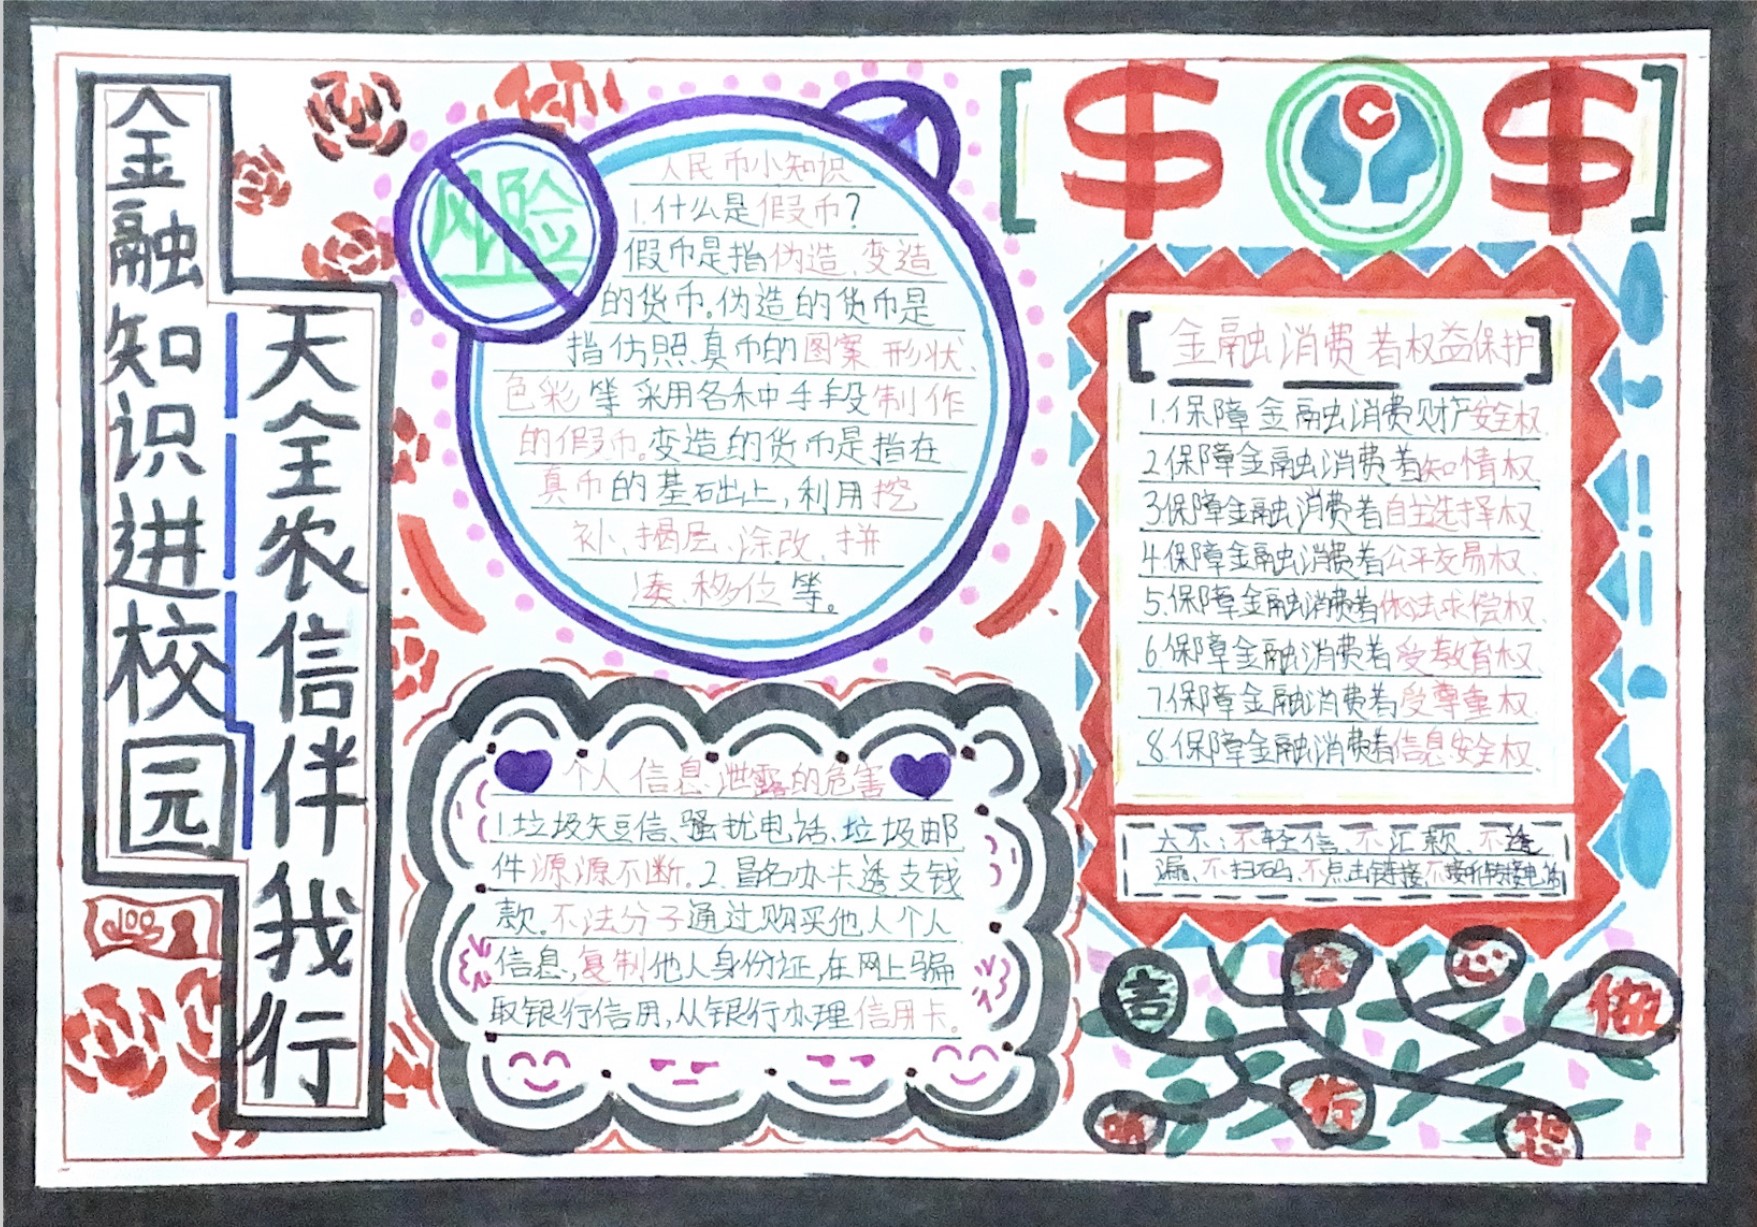 金融知识进校园
天全农信伴我行
100
风险
人民币小知识
1.什么是假币？
假币是指伪造、变造
的货币。伪造的货币是
指仿照真币的图案、形状、
色彩等采用各种手段制作
的假币。变造的货币是指在
真币的基础上，利用挖
补、揭层、涂改、拼
凑、移位等。
个人信息泄露的危害
1.垃圾短信、骚扰电话、垃圾邮
件源源不断。2.冒名办卡透支钱
款。不法分子通过购买他人个人
信息，复制他人身份证，在网上骗
取银行信用，从银行办理信用卡。
$ $
[金融消费者权益保护]
1.保障金融消费财产安全权、
2.保障金融消费者知情权、
3.保障金融消费者自主选择权、
4.保障金融消费者公平交易权、
5.保障金融消费者依法求偿权、
6.保障金融消费者受教育权、
7.保障金融消费者受尊重权、
8.保障金融消费者信息安全权、
六不：不轻信、不汇款、不透
漏、不扫码、不点击链接、不接听转接电话
言 心 做
行